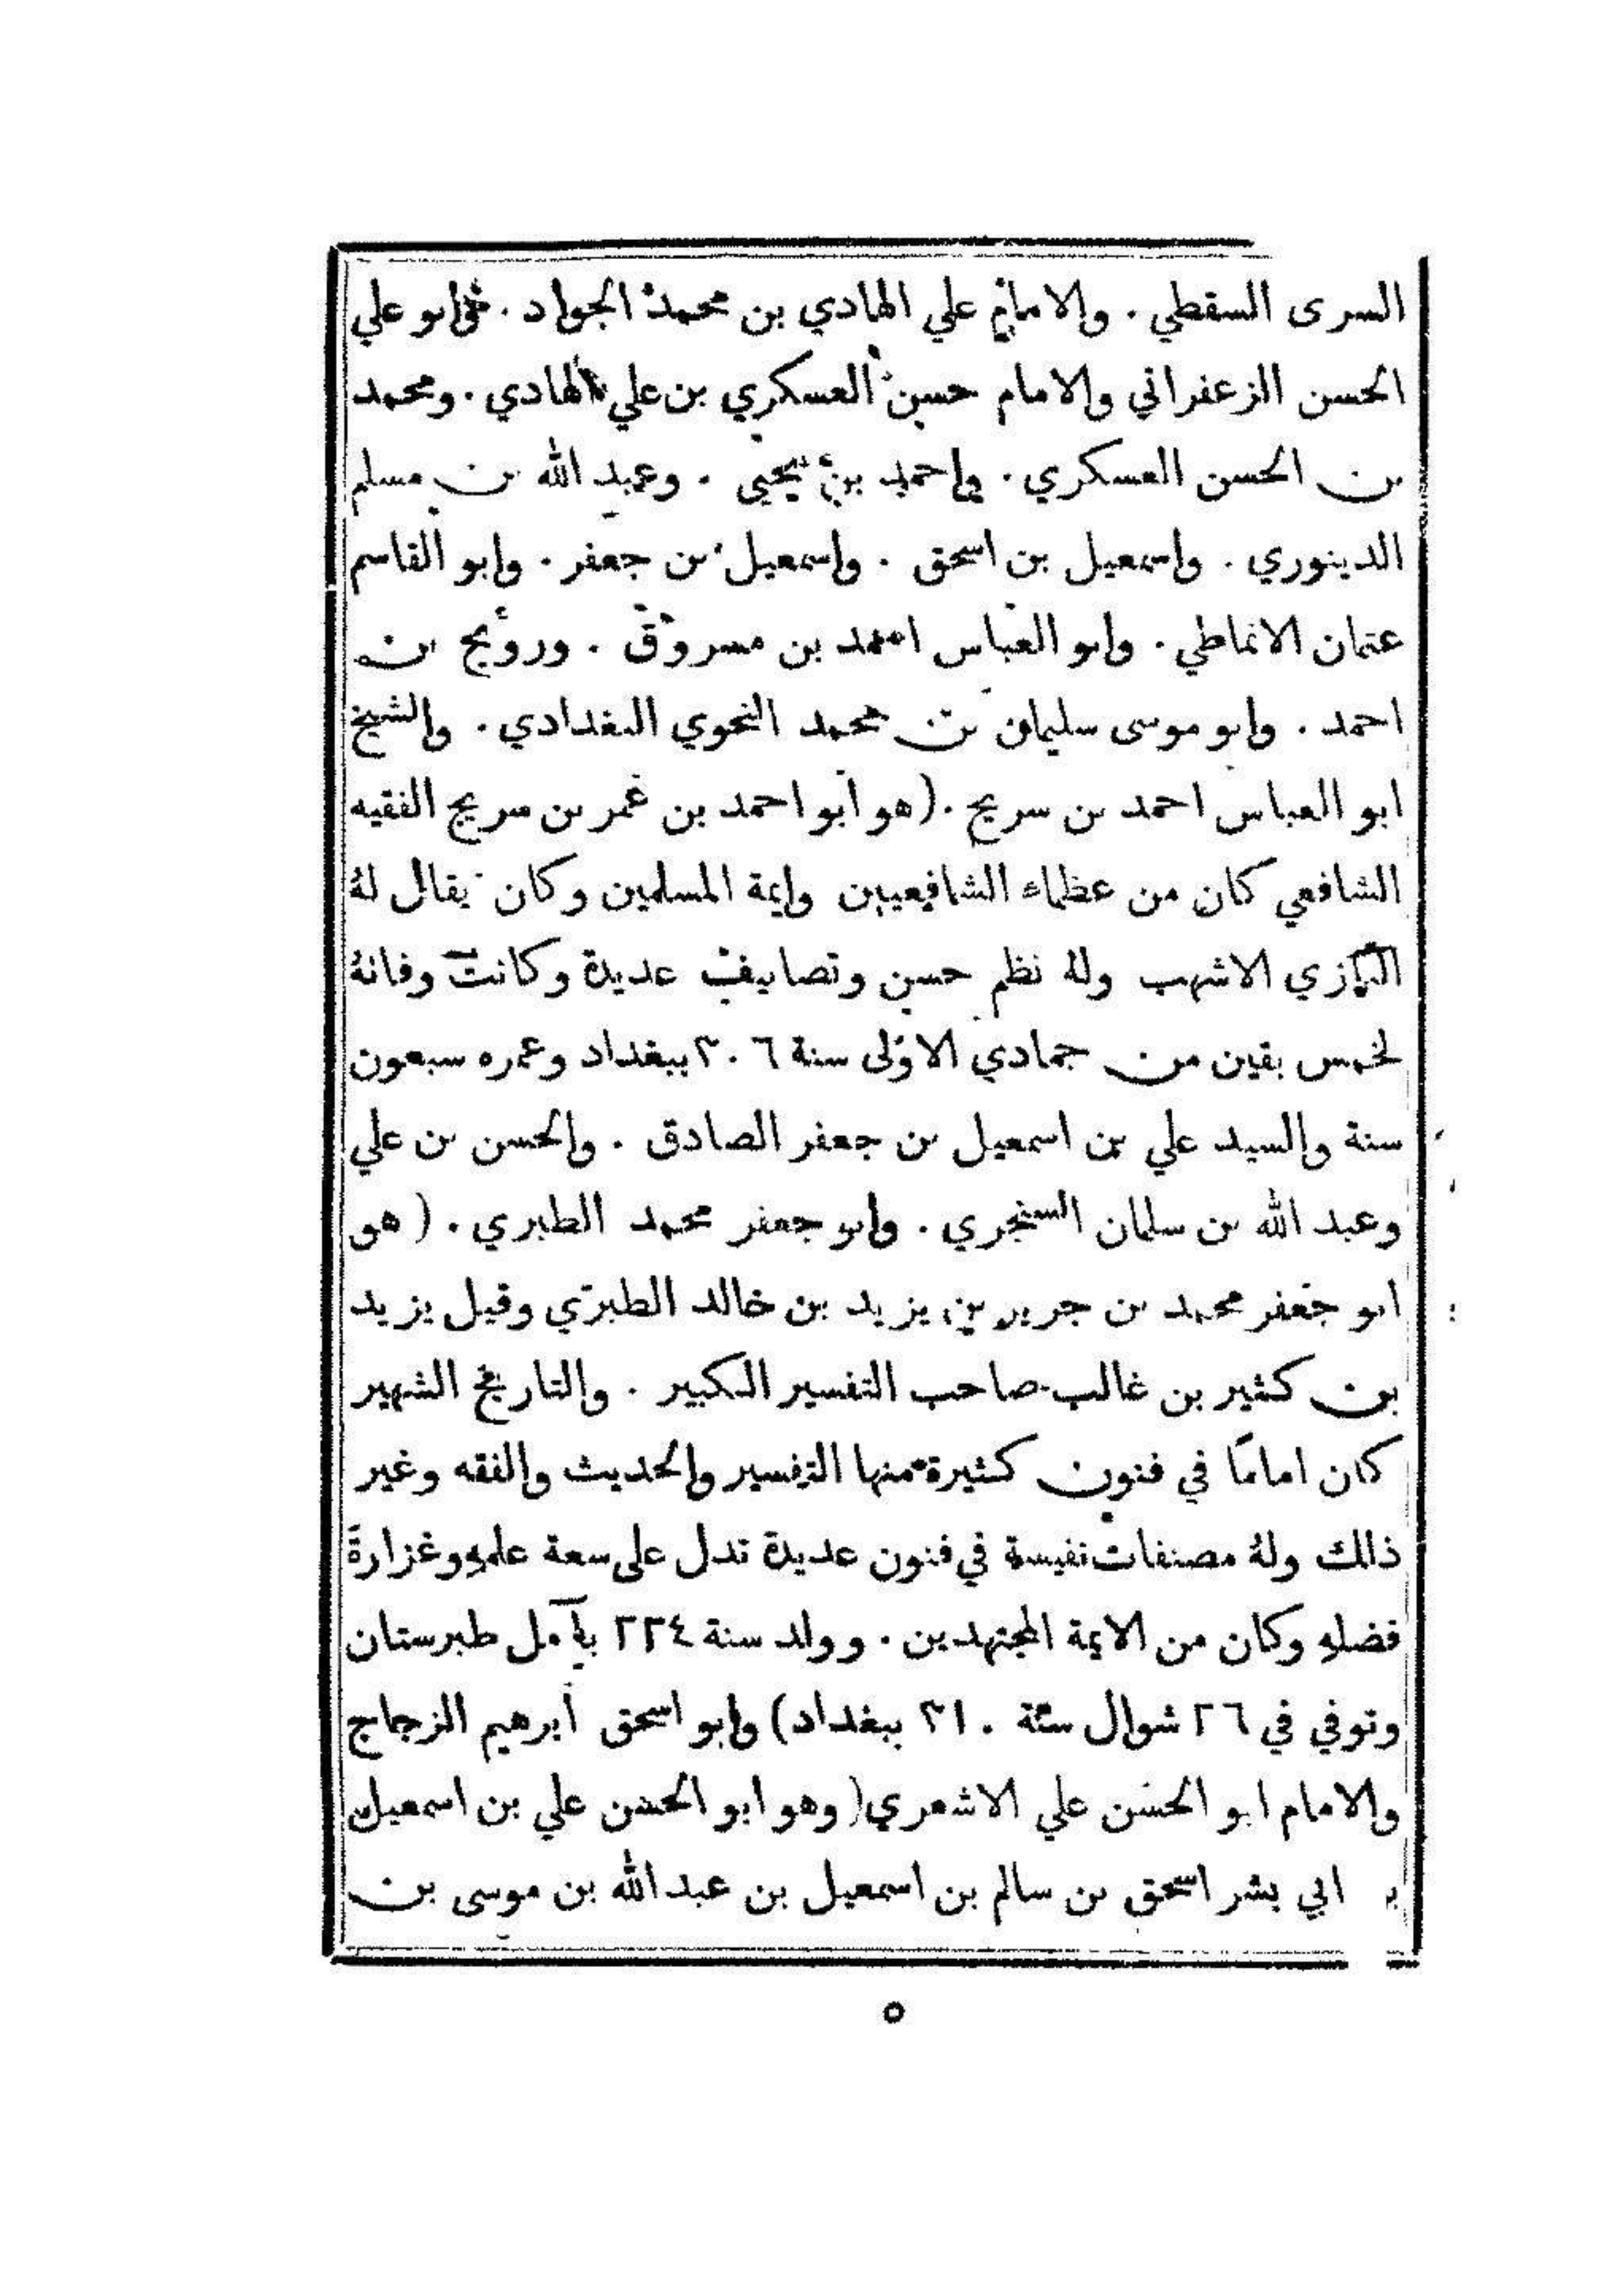 السرى السقطي . والامام علي الهادي بن محمد الجواد . وابو علي
الحسن الزعفراني والامام حسن العسكري بن علي الهادي . ومحمد
بن الحسن العسكري . واحمد بن يحيى . وعبد الله بن مسلم
الدينوري . واسمعيل بن اسحق . واسمعيل بن جعفر . وابو القاسم
عثمان الانماطي . وابو العباس احمد بن مسروق . ورويج بن
احمد . وابو موسى سليمان بن محمد النحوي البغدادي . والشيخ
ابو العباس احمد بن سريج . (هو ابو احمد بن عمر بن سريج الفقيه
الشافعي كان من عظماء الشافعيين وايمة المسلمين وكان يقال لهُ
البازي الاشهب ولهُ نظم حسن وتصانيف عديدة وكانت وفاتهُ
لخمس بقين من جمادي الاولى سنة ٣٠٦ ببغداد وعمره سبعون
سنة والسيد علي بن اسمعيل بن جعفر الصادق . والحسن بن علي
وعبد الله بن سلمان السنجري . وابو جعفر محمد الطبري . (هو
ابو جعفر محمد بن جرير بن يزيد بن خالد الطبري وقيل يزيد
بن كثير بن غالب صاحب التفسير الكبير . والتاريخ الشهير
كان اماما في فنون كثيرة منها التفسير والحديث والفقه وغير
ذلك ولهُ مصنفات نفيسة في فنون عديدة تدل على سعة علمهِ وغزارة
فضلهِ وكان من الايمة المجتهدين . وولد سنة ٢٢٤ بآمل طبرستان
وتوفي في ٢٦ شوال سنة ٣١٠ ببغداد) وابو اسحق ابرهيم الزجاج
والامام ابو الحسن علي الاشعري (وهو ابو الحسن علي بن اسمعيل
ابي بشر اسحق بن سالم بن اسمعيل بن عبد الله بن موسى بن
٥